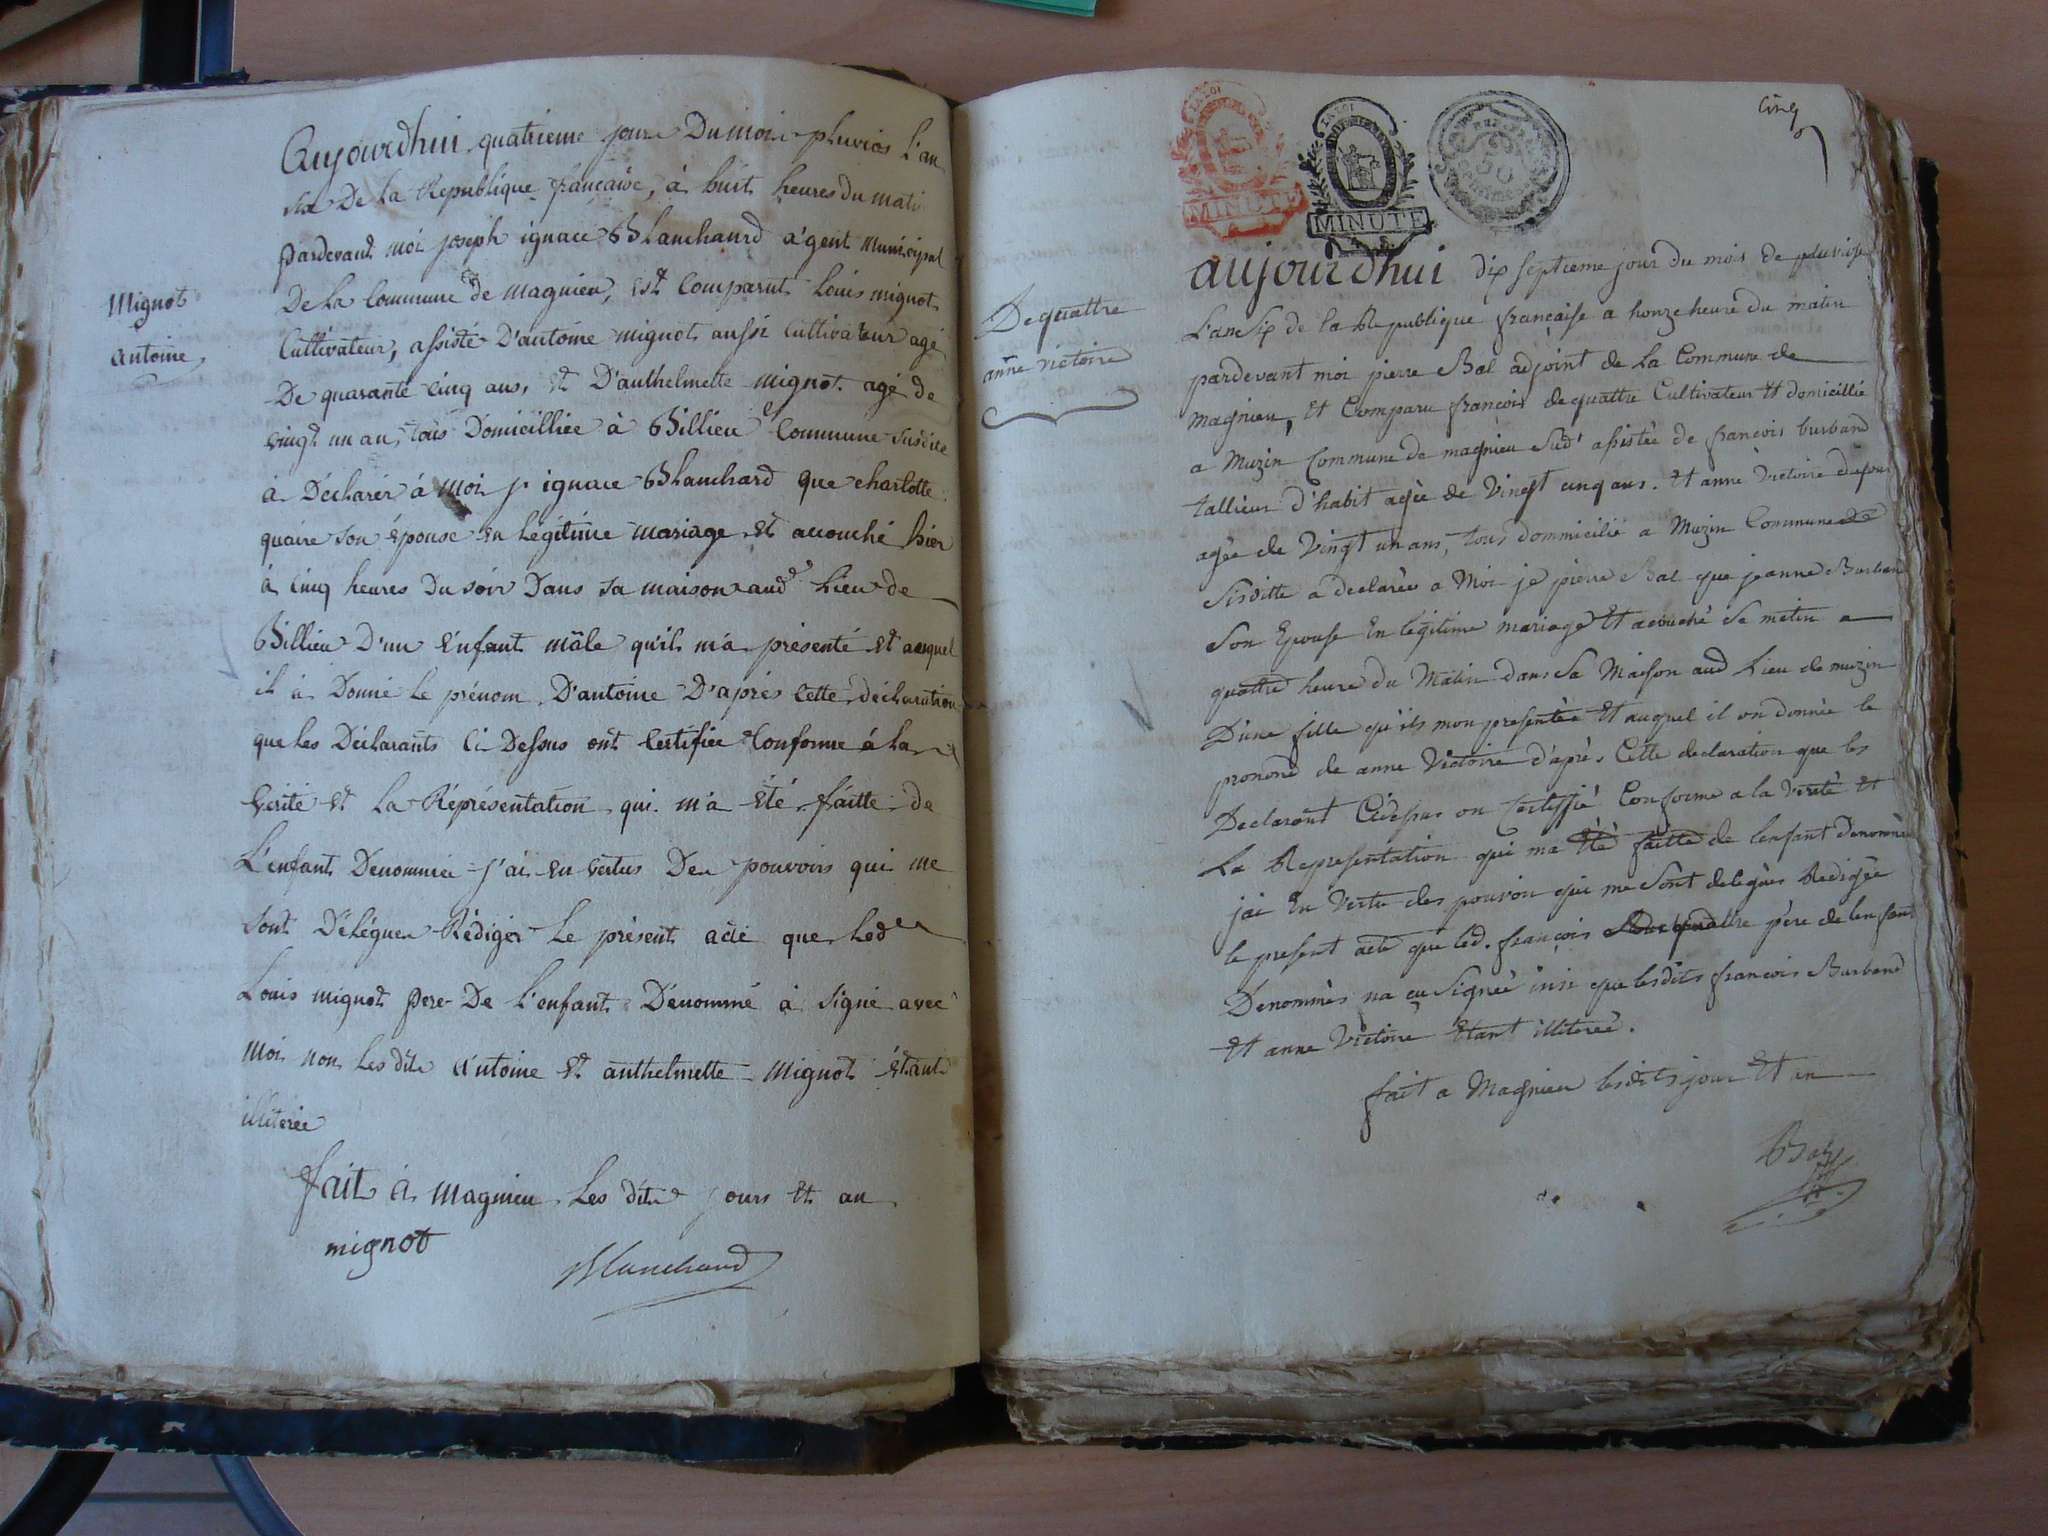 Mignot
Antoine
Aujourdhui quatrieme jour Du mois pluvios l'an
six De la Republique françaisе, à huit heures du matin
Pardevant moi joseph ignace Blanchard agent Municipal
De La Commune de magnieu, est Comparut Louis mignot
Cultivateur, assisté D'antoine mignot aussi Cultivateur agé
De quarante cinq ans, et D'anthelmette mignot agé de
vingt un an, tous Domicilliée à Billieu Commune susdite
à Déclarér à Moi j ignace Blanchard que charlotte
quaire son épouse en Légitime mariage et accouché hier
à Cinq heures Du soir Dans sa maison aud Lieu de
Billieu D'un Enfant mâle qu'il m'a présenté et auquel
il à Donné Le prénom D'antoine D'aprés Cette déclaration
que les Déclarants Ci Dessus ont Certifiée Conforme á la
verité et La Réprésentation qui m'a été faitte de
L'enfant Dénommée j'ai en vertus Des pouvoirs qui me
sont Déléguer Rédiger Le présent acte que Led
Louis mignot Pere De L'enfant Dénommé à Signé avec
Moi non Les dits Antoine et anthelmette Mignot étant
illiterée
fait à magnieu Les dits jours et an
mignot
Blanchard
LA LOI
MINUTE
LA LOI
MINUTE
50
Cinq
Dequattre
anne victoire
aujourdhui dix septieme jour du mois de pluviose
L'an Six de la Republique française a honze heure du matin
pardevant moi pierre Bal adjoint de La Commune de
Magnieu, et Comparu françois dequattre Cultivateur et domicillié
a Muzin Commune de magnieu Sud assistée de francois burband
tallieur d'habit agée de Vingt cinq ans. et anne Victoire dufour
agée de Vingt un ans, tous dommicilié a Muzin Commune de
Sisditte a declarée a Moi je pierre Bal que jeanne Burband
Son Epouse En légitime mariage et acouché Se matin a
quattre heure du Matin dans Sa Maison aud Lieu de muzin
D'une fille qu'ils mon presentée et auquel il on donnée le
pronond de anne Victoire d'après Cette declaration que les
Declarant Cidessus on Certiffié Conforme a la verité et
La Representation qui ma été faitte de lenfant denommée
jai En Vertu des pouvoir qui me Sont delegées Redigée
le present acte que led. françois Dequattre père de lenfant
Denommés na eu Signeé insi que lesdits francois Burband
et anne Victoire Etant illitereé.
fait a Magnieu lesdits jour et an
Bal